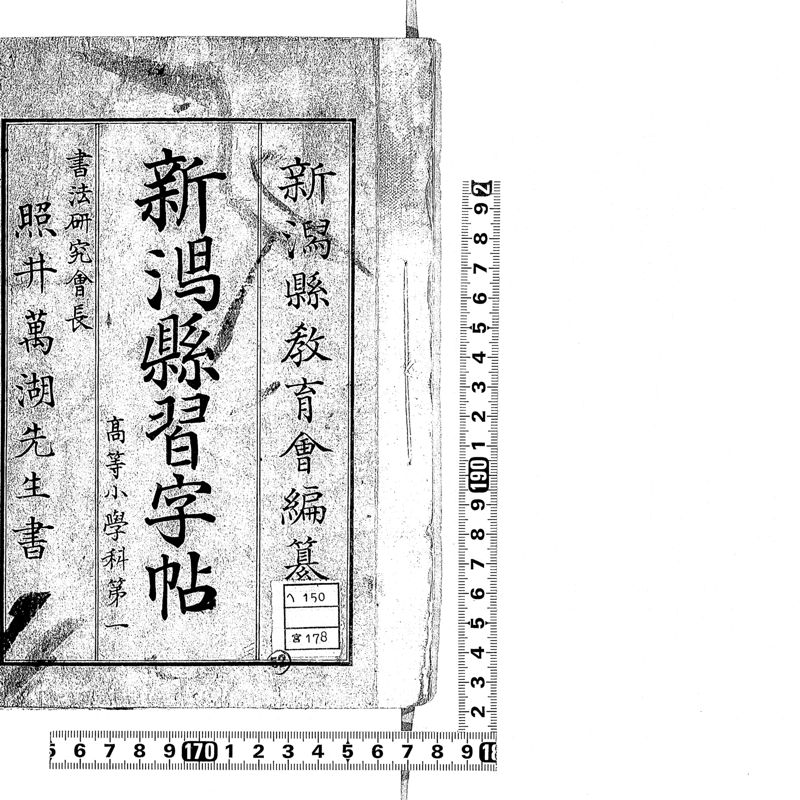 新潟縣教育會編纂
新潟縣習字帖
高等小學科第一
書法研究會長
照井萬湖先生書
へ 150
宮 178
52
2 9 8 7 6 5 4 3 2 1 190 9 8 7 6 5 4 3 2
5 6 7 8 9 170 1 2 3 4 5 6 7 8 9 18